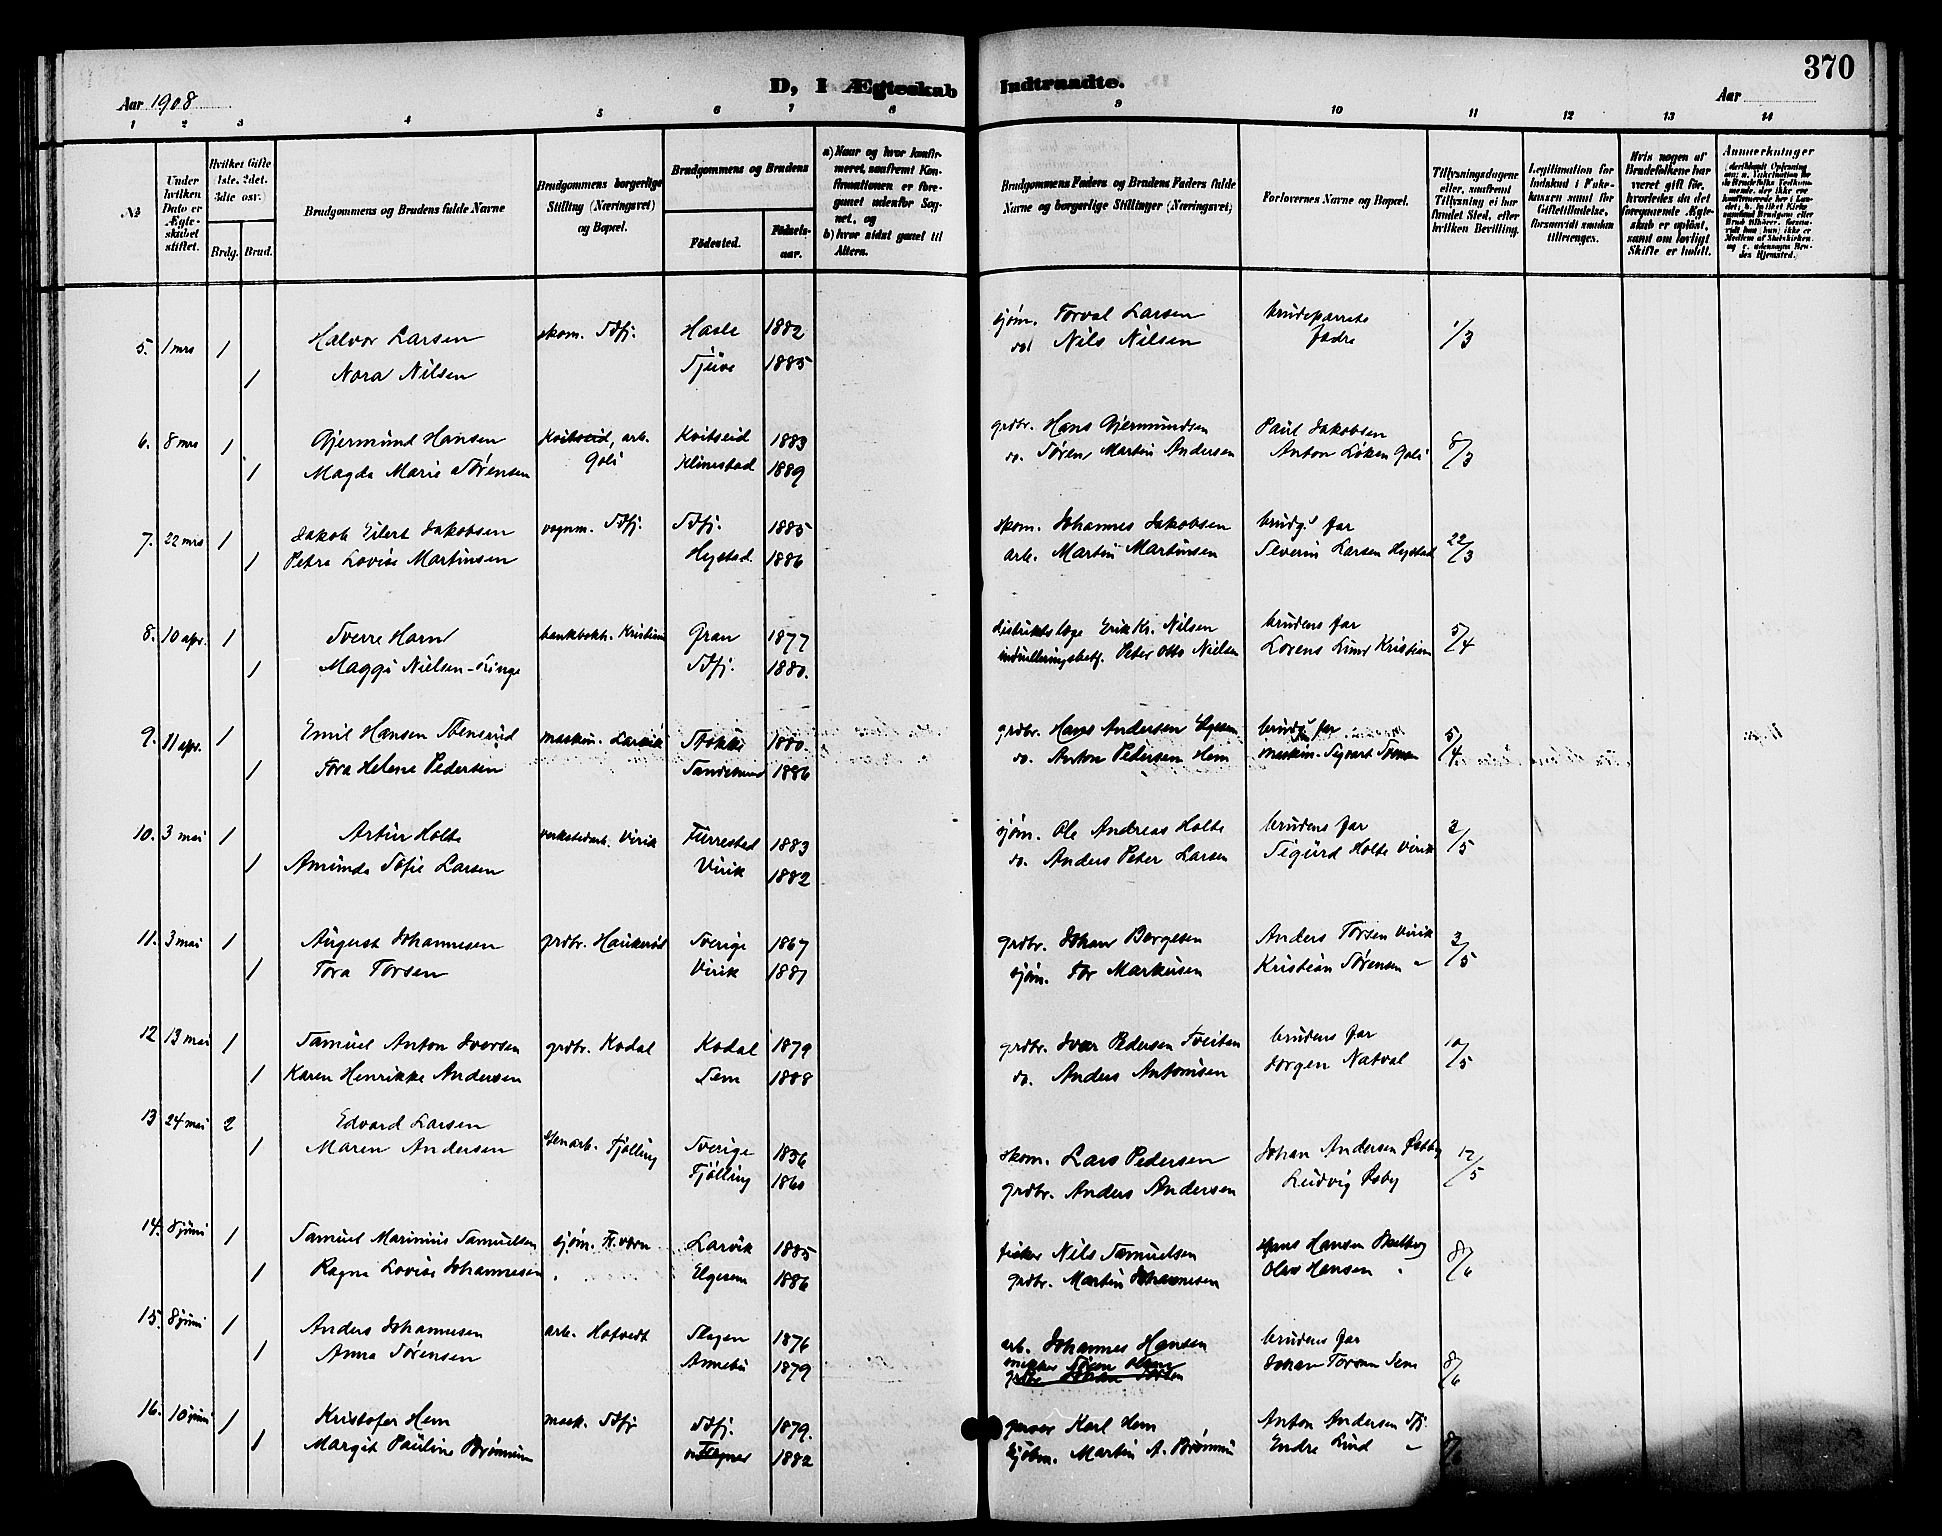 370
D, I Ægteskab Indtraadte.
Aar 1908
Aar
1 2 3 4 5 6 7 8 9 10 11 12 13 14
No
Under hvilken Dato er Ægteskabet stiftet.
Hvilket Gifte 1ste, 2det, 3die osv.
Brdg. Brud.
Brudgommens og Brudens fulde Navne
Brudgommens borgerlige Stilling (Næringsvei) og Bopæl.
Brudgommens og Brudens
Födested.
Födselsaar.
a) Naar og hvor konfirmeret, saafremt Konfirmationen er foregaaet udenfor Sognet, og
b) hvor sidst gaaet til Alters.
Brudgommens Faders og Brudens Faders fulde Navne og borgerlige Stillinger (Næringsvei)
Forlovernes Navne og Bopæl.
Tillysningsdagene eller, saafremt Tillysning ei har fundet Sted, efter hvilken Bevilling.
Legitimation for Indskud i Enkekassen samt for Giftetilladelse, forsaavidt saadan tiltrænges.
Hvis nogen af Brudefolkene har været gift för, hvorledes da det foregaaende Ægteskab er oplöst, samt om lovligt Skifte er holdt.
Anmærkninger
5. 1 mrs 1 Halvor Larsen skom. Sdfj. Hasle 1882 sjøm. Torval Larsen brudeparrets 1/3
1 Nora Nilsen Tjuve 1885 do Nils Nilsen fædre
6. 8 mrs 1 Gjermund Hansen Kvitseid, arb. Kvitseid 1883 grdbr. Hans Gjermundsen Paul Jakobsen 8/3
1 Magda Marie Sørensen Goli Klinestad 1889 do. Søren Martin Andersen Anton Løken Goli
7. 22 mrs 1 Jakob Eilert Jakobsen vognm. Sdfj. Sdfj. 1885 skom. Johannes Jakobsen brudg.s far 22/3
1 Petra Lovise Martinsen Hystad 1886 arb. Martin Martinsen Severin Larsen Hystad
8. 10 apr. 1 Sverre Horn bankbokh. Kristiania Gran 1877 distriktslæge Erik Kr. Nilsen brudens far 5/4
1 Maggi Nielsen-Ringe Sdfj. 1880. Peter Otto Nielsen Lorens Lund Kristiania
9. 11 apr. 1 Emil Hansen Stensrud maskin. Larvik Stokke 1880. grdbr. Hans Andersen brudg.s far 5/4
1 Tora Helene Pedersen Sandesund 1886 do. Anton Pedersen Hem maskin. Sigvart
10. 3 mai 1 Artur Holte verkstedarb. Virik Furrestad 1883 sjøm. Ole Andreas Holte brudens far 3/5
1 Amunda Sofie Larsen Virik 1882 do. Anders Peter Larsen Sigurd Holte Virik
11. 3 mai 1 August Johannesen grdbr. Haukerød Sverige 1867 grdbr. Johan Borgesen Anders Torsen Virik 3/5
1 Tora Torsen Virik 1881 sjøm. Tor Markusen Kristian Sørensen "
12 13 mai 1 Samuel Anton Iversen grdbr. Kodal Kodal 1879 grdbr. Ivar Pedersen Tveitan brudens far 10/5
1 Karen Henrikke Andersen Sem 1888 do. Anders Antonisen Jørgen Natval
13 24 mai 2 Edvard Larsen stenarb. Tjølling Sverige 1856 skom. Lars Pedersen Johan Andersen Østby 12/5
1 Maren Andersen Tjølling 1860 grdbr. Anders Andersen Ludvig Øsby
14. 8 juni 1 Samuel Marinius Samuelsen sjøm. Fr.værn Larvik 1885 fisker Nils Samuelsen Hans Hansen 8/6
1 Ragna Lovise Johannesen " Elgesem 1886 grdbr. Martin Johannesen Olav Hansen "
15. 8 juni 1 Anders Johannesen arb. Hotvedt Slagen 1876 arb. Johannes Hansen brudens far 8/6
1 Anna Sørensen Annebu 1879 Søren Olsen Johan Torsen Sem
grdbr. Johan Torsen
16. 10 juni 1 Kristofer Hem mask. Sdfj Sdfj. 1879. garver Karl Hem Anton Andersen Sfj 8/6
1 Margit Pauline Brønnum 1882 sjøm. Martin A. Brønnum Endre Lind "